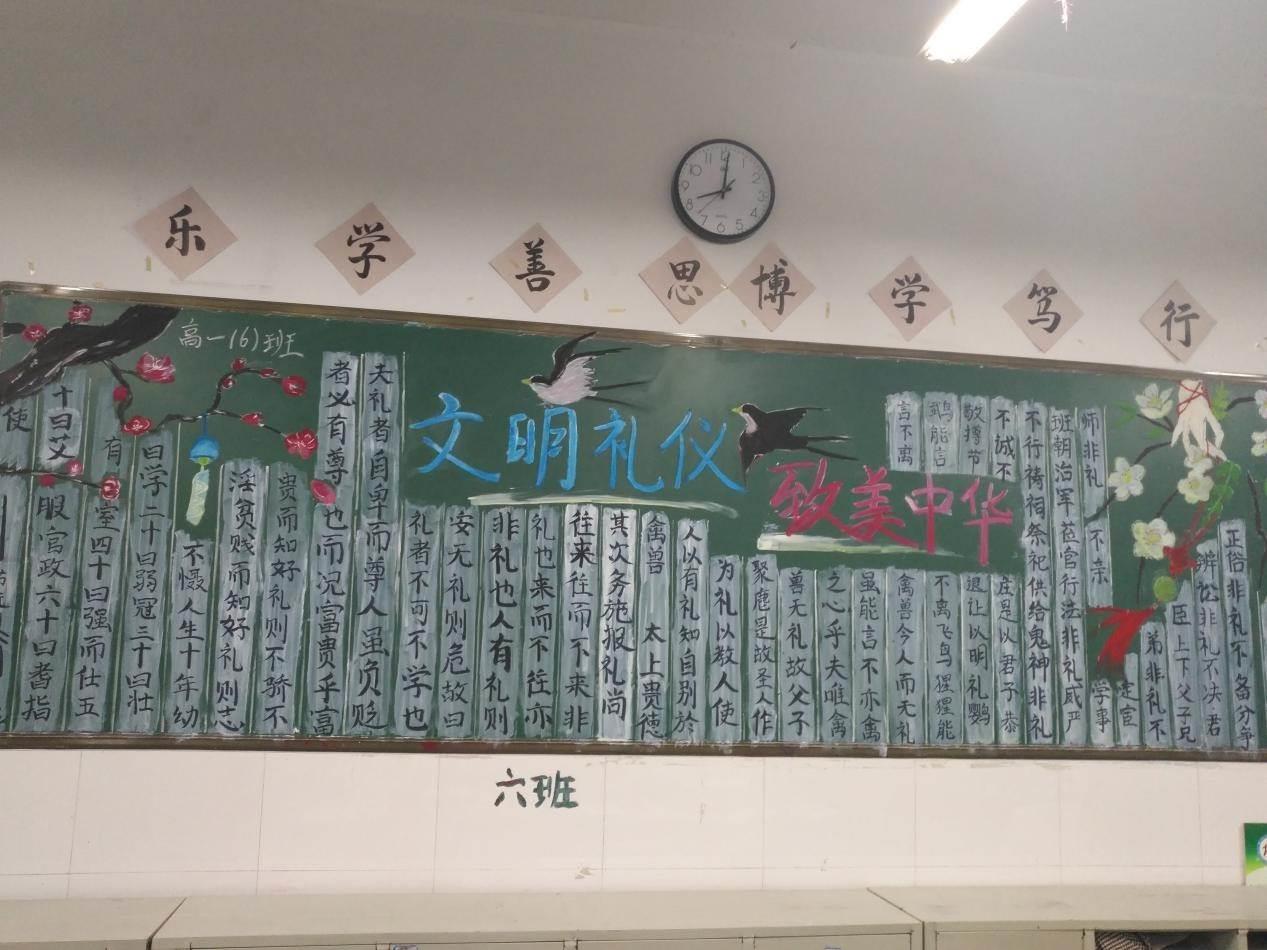 乐学善思博学笃行
高一(6)班
文明礼仪
致美中华
正俗非礼不备分争
辨讼非礼不决君
臣上下父子兄
弟非礼不
定宦
学事
师非礼不亲
班朝治军莅官行法非礼威严
不行祷祠祭祀供给鬼神非礼
不诚不庄是以君子恭
敬撙节退让以明礼鹦
鹉能言不离飞鸟猩猩能
言不离禽兽今人而无礼
虽能言不亦禽
之心乎夫唯禽
兽无礼故父子
聚麀是故圣人作
为礼以教人使
人以有礼知自别於
禽兽太上贵德
其次务施报礼尚
往来往而不来非
礼也来而不往亦
非礼也人有礼则
安无礼则危故曰
礼者不可不学也
夫礼者自卑而尊人虽负贩
者必有尊也而况富贵乎富
贵而知好礼则不骄不
淫贫贱而知好礼则志
不慑人生十年幼
曰学二十曰弱冠三十曰壮
有室四十曰强而仕五
十曰艾服官政六十曰耆指
使
六班